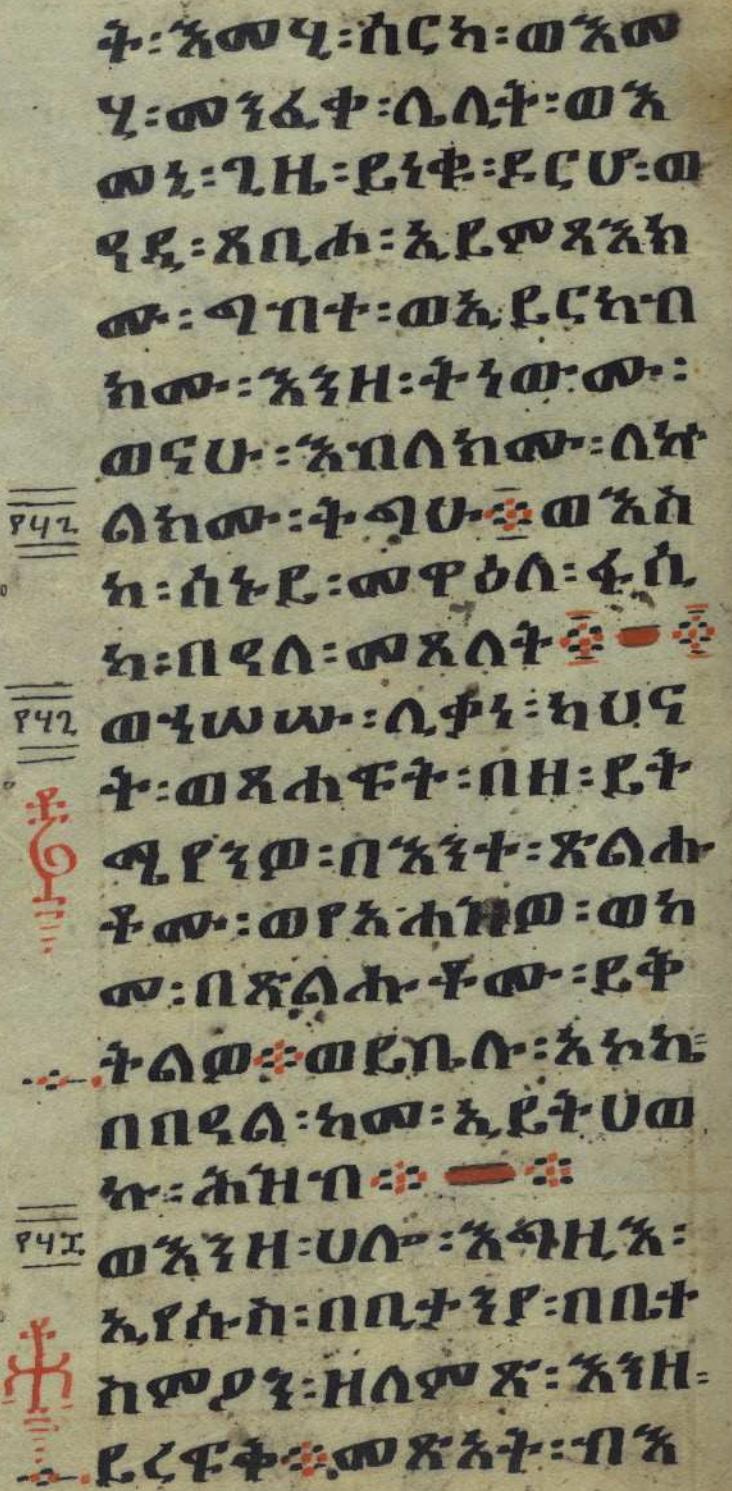 ት፡እመሂ፡ሰርከ፡ወእመ
ሂ፡መንፈቀ፡ሌሊት፡ወእ
መኒ፡ጊዜ፡ይነቁ፡ዶርሆ፡ወ
ዓዲ፡ጸቢሐ፡ኢይምጻእክ
ሙ፡ግብተ፡ወኢይርከብ
ክሙ፡እንዘ፡ትነውሙ፡
ወናሁ፡እብለክሙ፡ለኵ
ልክሙ፡ትግሁ። ወእስ
ከ፡ሰኑይ፡መዋዕለ፡ፋሲ
ካ፡በዓለ፡መጸለት።
ወኀሠሡ፡ሊቃነ፡ካህና
ት፡ወጸሐፍት፡በዘ፡ይት
ሜየንዎ፡በእንተ፡ጽልሑ
ቶሙ፡ወየአሐዝዎ፡ወከ
መ፡በጽልሑቶሙ፡ይቅ
ትልዎ። ወይቤሉ፡አኮኬ፡
በበዓል፡ከመ፡ኢይትሀወ
ኩ፡ሕዝብ።
ወእንዘ፡ሀሎ፡እግዚእ፡
ኢየሱስ፡በቢታንያ፡በቤተ
ስምዖን፡ዘለምጽ፡እንዘ፡
ይረፍቅ። መጽአት፡ብእ